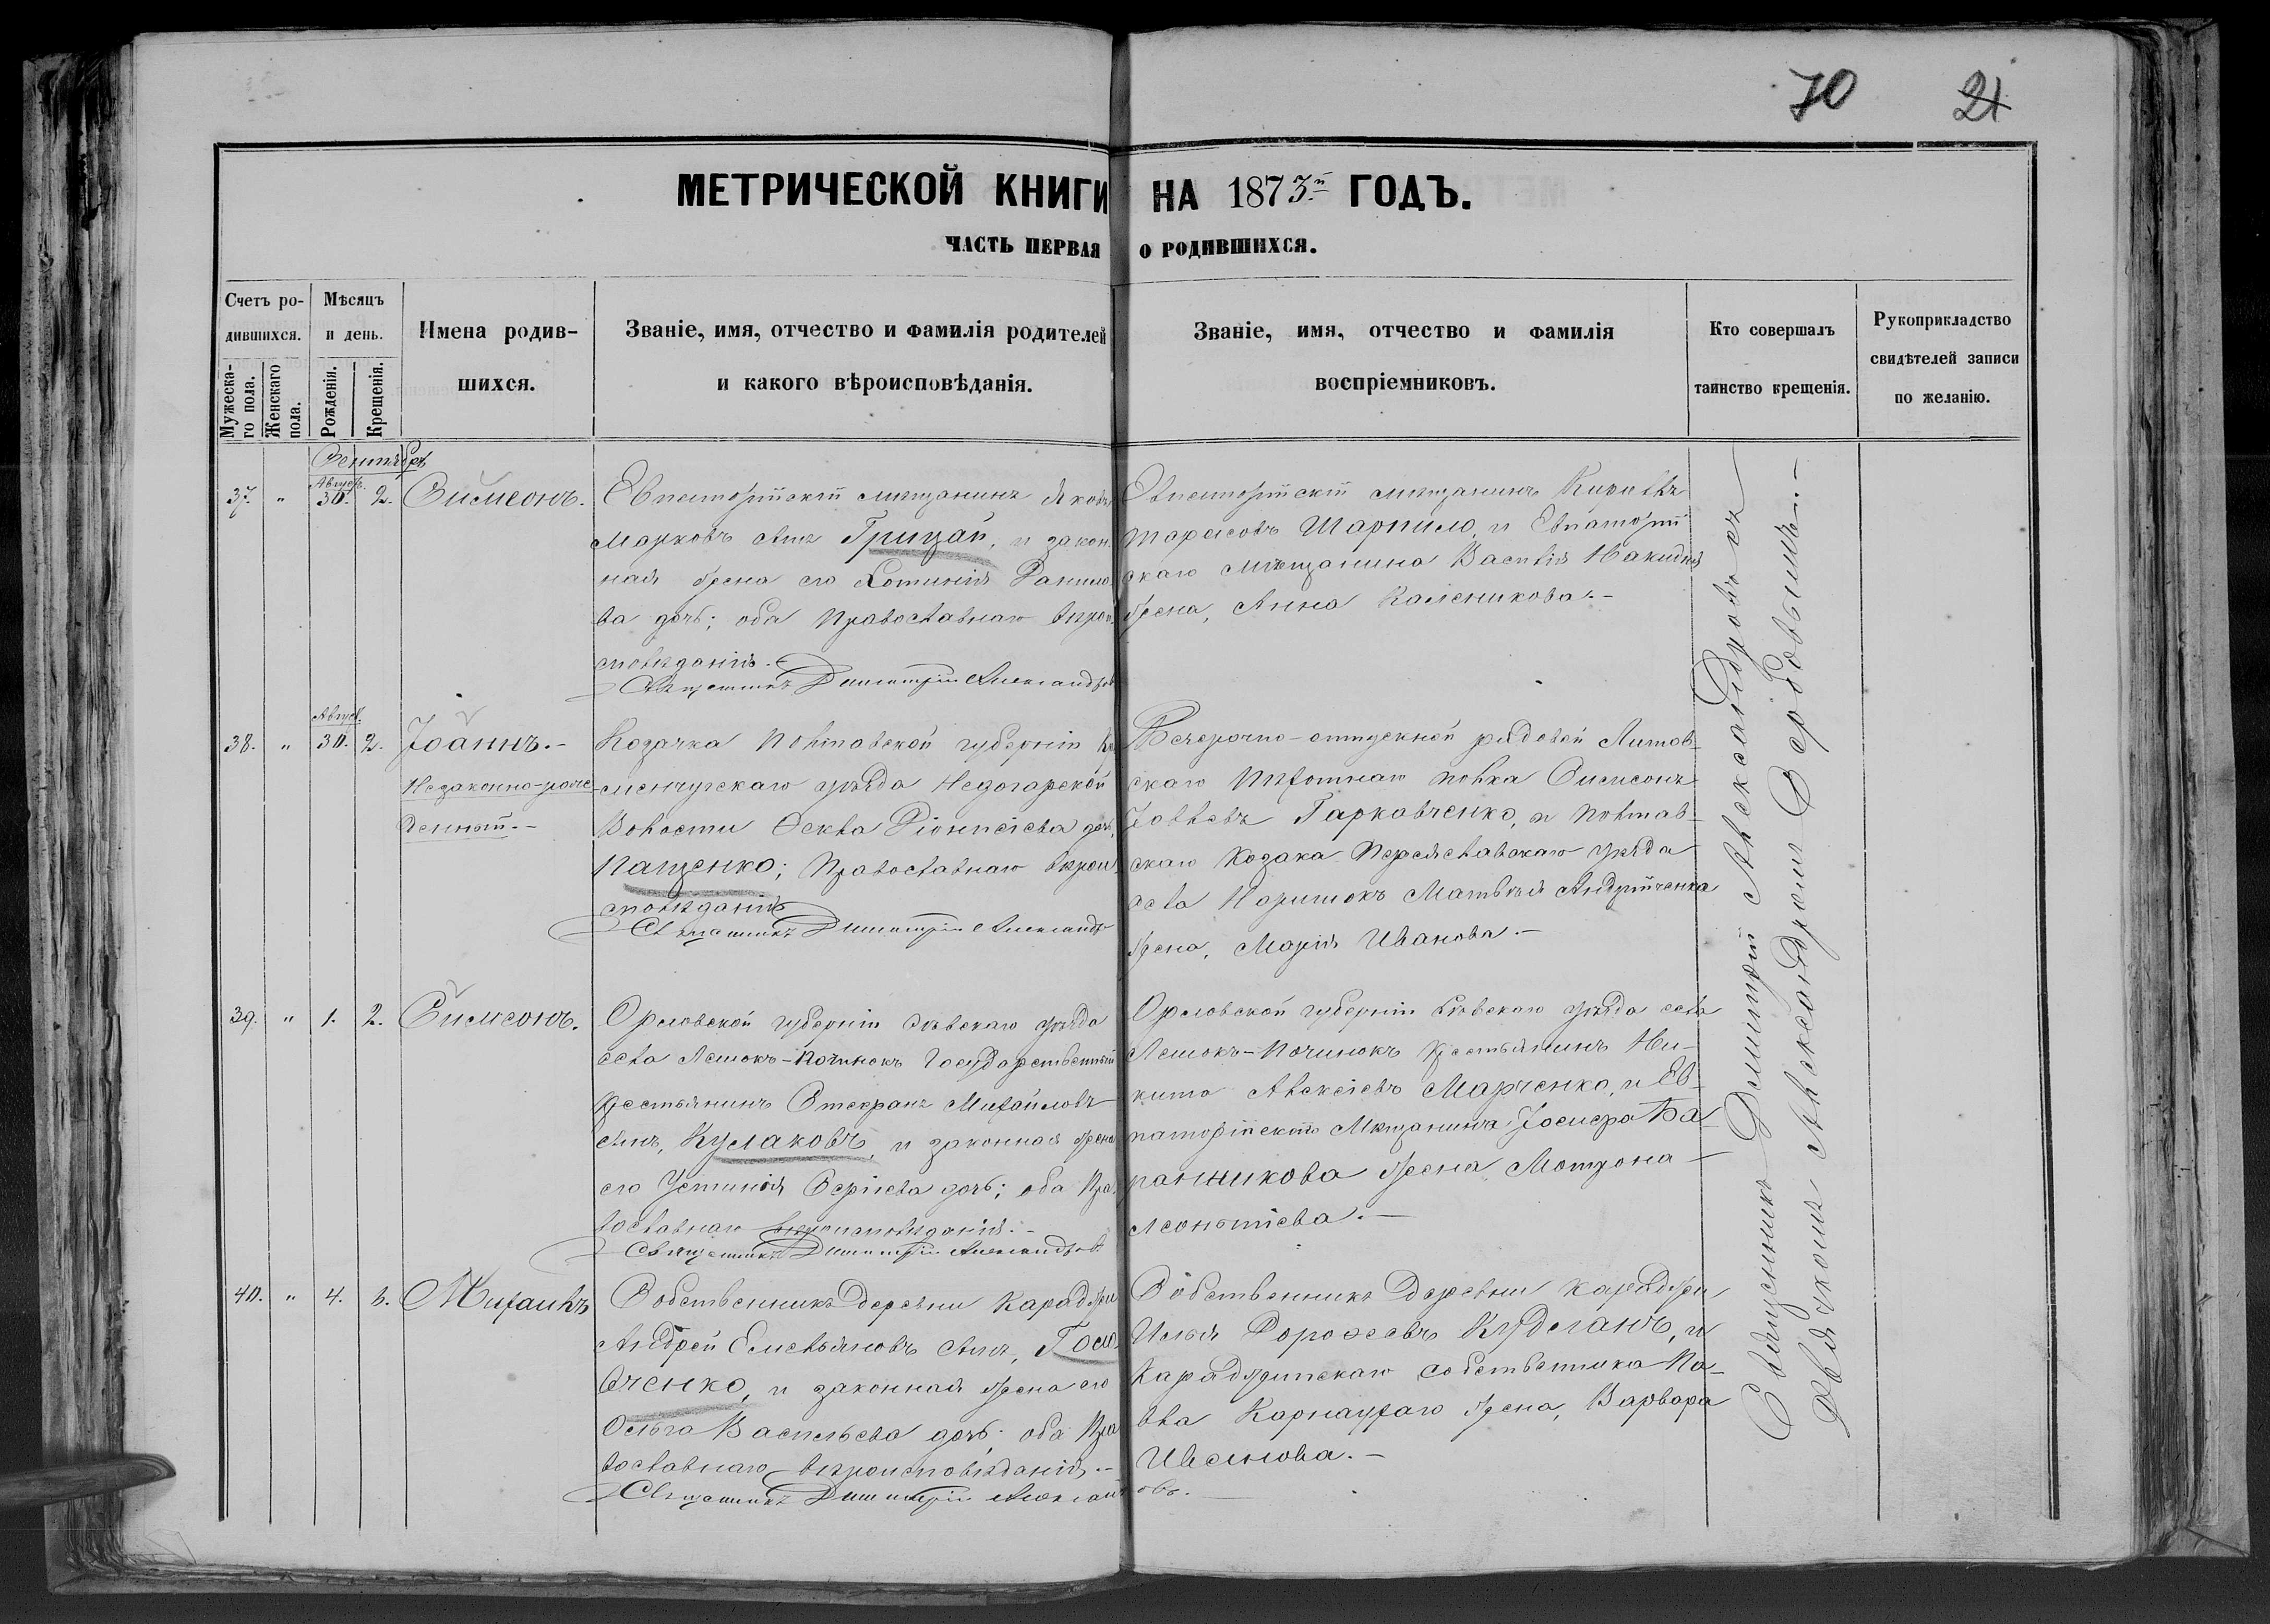 70 21
МЕТРИЧЕСКОЙ КНИГИ НА 1873й ГОДЪ.
ЧАСТЬ ПЕРВАЯ О РОДИВШИХСЯ.
Счетъ ро-
дившихся.
Мужеска-
го пола.
Женскаго
пола.
Мѣсяцъ
и день.
Рожденія.
Крещенія.
Имена родив-
шихся.
Званіе, имя, отчество и фамилія родителей
и какого вѣроисповѣданія.
Званіе, имя, отчество и фамилія
воспріемниковъ.
Кто совершалъ
таинство крещенія.
Рукоприкладство
свидѣтелей записи
по желанію.
Сентябрь
Август.
37. " 30. 2. Симеонъ.
Евпаторійскій мѣщанинъ Яковъ
Марковъ сынъ Грицай, и закон-
ная жена его Фотинія Данило-
ва дочь; оба Православнаго вѣрои-
сповѣданія.
Священникъ Димитрій Александров
Евпаторійскій мѣщанинъ
Тарасовъ Шарпило, и Евпаторій
скаго мѣщанина Василія Накидня
жена, Анна Каленикова.-
Август.
38. " 30. 2. Іоаннъ.-
Незаконно-рож-
денный.-
Козачка Полтавской губерніи Кре
менчугскаго уѣзда Недогарской
Волости Фекла Діонисіева дочь,
Пащенко; Православнаго вѣрои-
сповѣданія
Священникъ Димитрій Александр
Безсрочно-отпускной рядовой Литов-
скаго Пѣхотнаго полка Симеонъ
Іовлевъ Гарковченко, и Полтав-
скаго Козака Переяславскаго уѣзда
села Матвѣя Андрійченка
жена, Марія Иванова.-
39. " 1. 2. Симеонъ.
Орловской губерніи Сѣвскаго уѣзда
села Лемокъ-Починокъ Государственный
крестьянинъ Стефанъ Михайловъ
сынъ, Кулаковъ, и законная жена
его Устинія Сергіева дочь; оба Пра-
вославнаго вѣроисповѣданія.-
Священникъ Димитрій Александров.
Орловской губерніи Сѣвскаго уѣзда села
Лемокъ-Починокъ крестьянинъ Ни-
кита Алексіевъ Марченко, и Ев-
паторійскаго Мѣщанина Іосифа Ба-
ранникова жена Мотрона
Леонтіева.-
40. " 4. Михаилъ
Собственникъ Деревни Караджи
Андрей Емельяновъ сынъ, Голо-
вченко, и законная жена его
Ольга Васильева дочь; оба Пра
вославнаго вѣроисповѣданія.-
Священникъ Димитрій Александ
овъ.
Собственникъ Деревни Караджи
Илья Дорофеевъ Куделанъ, и
Караджинскаго собственника Па-
вла Карнаухаго жена, Варвара
Иванова.-
Священникъ Димитрій Александровъ съ
Дьячкомъ Александромъ Сербовымъ.-